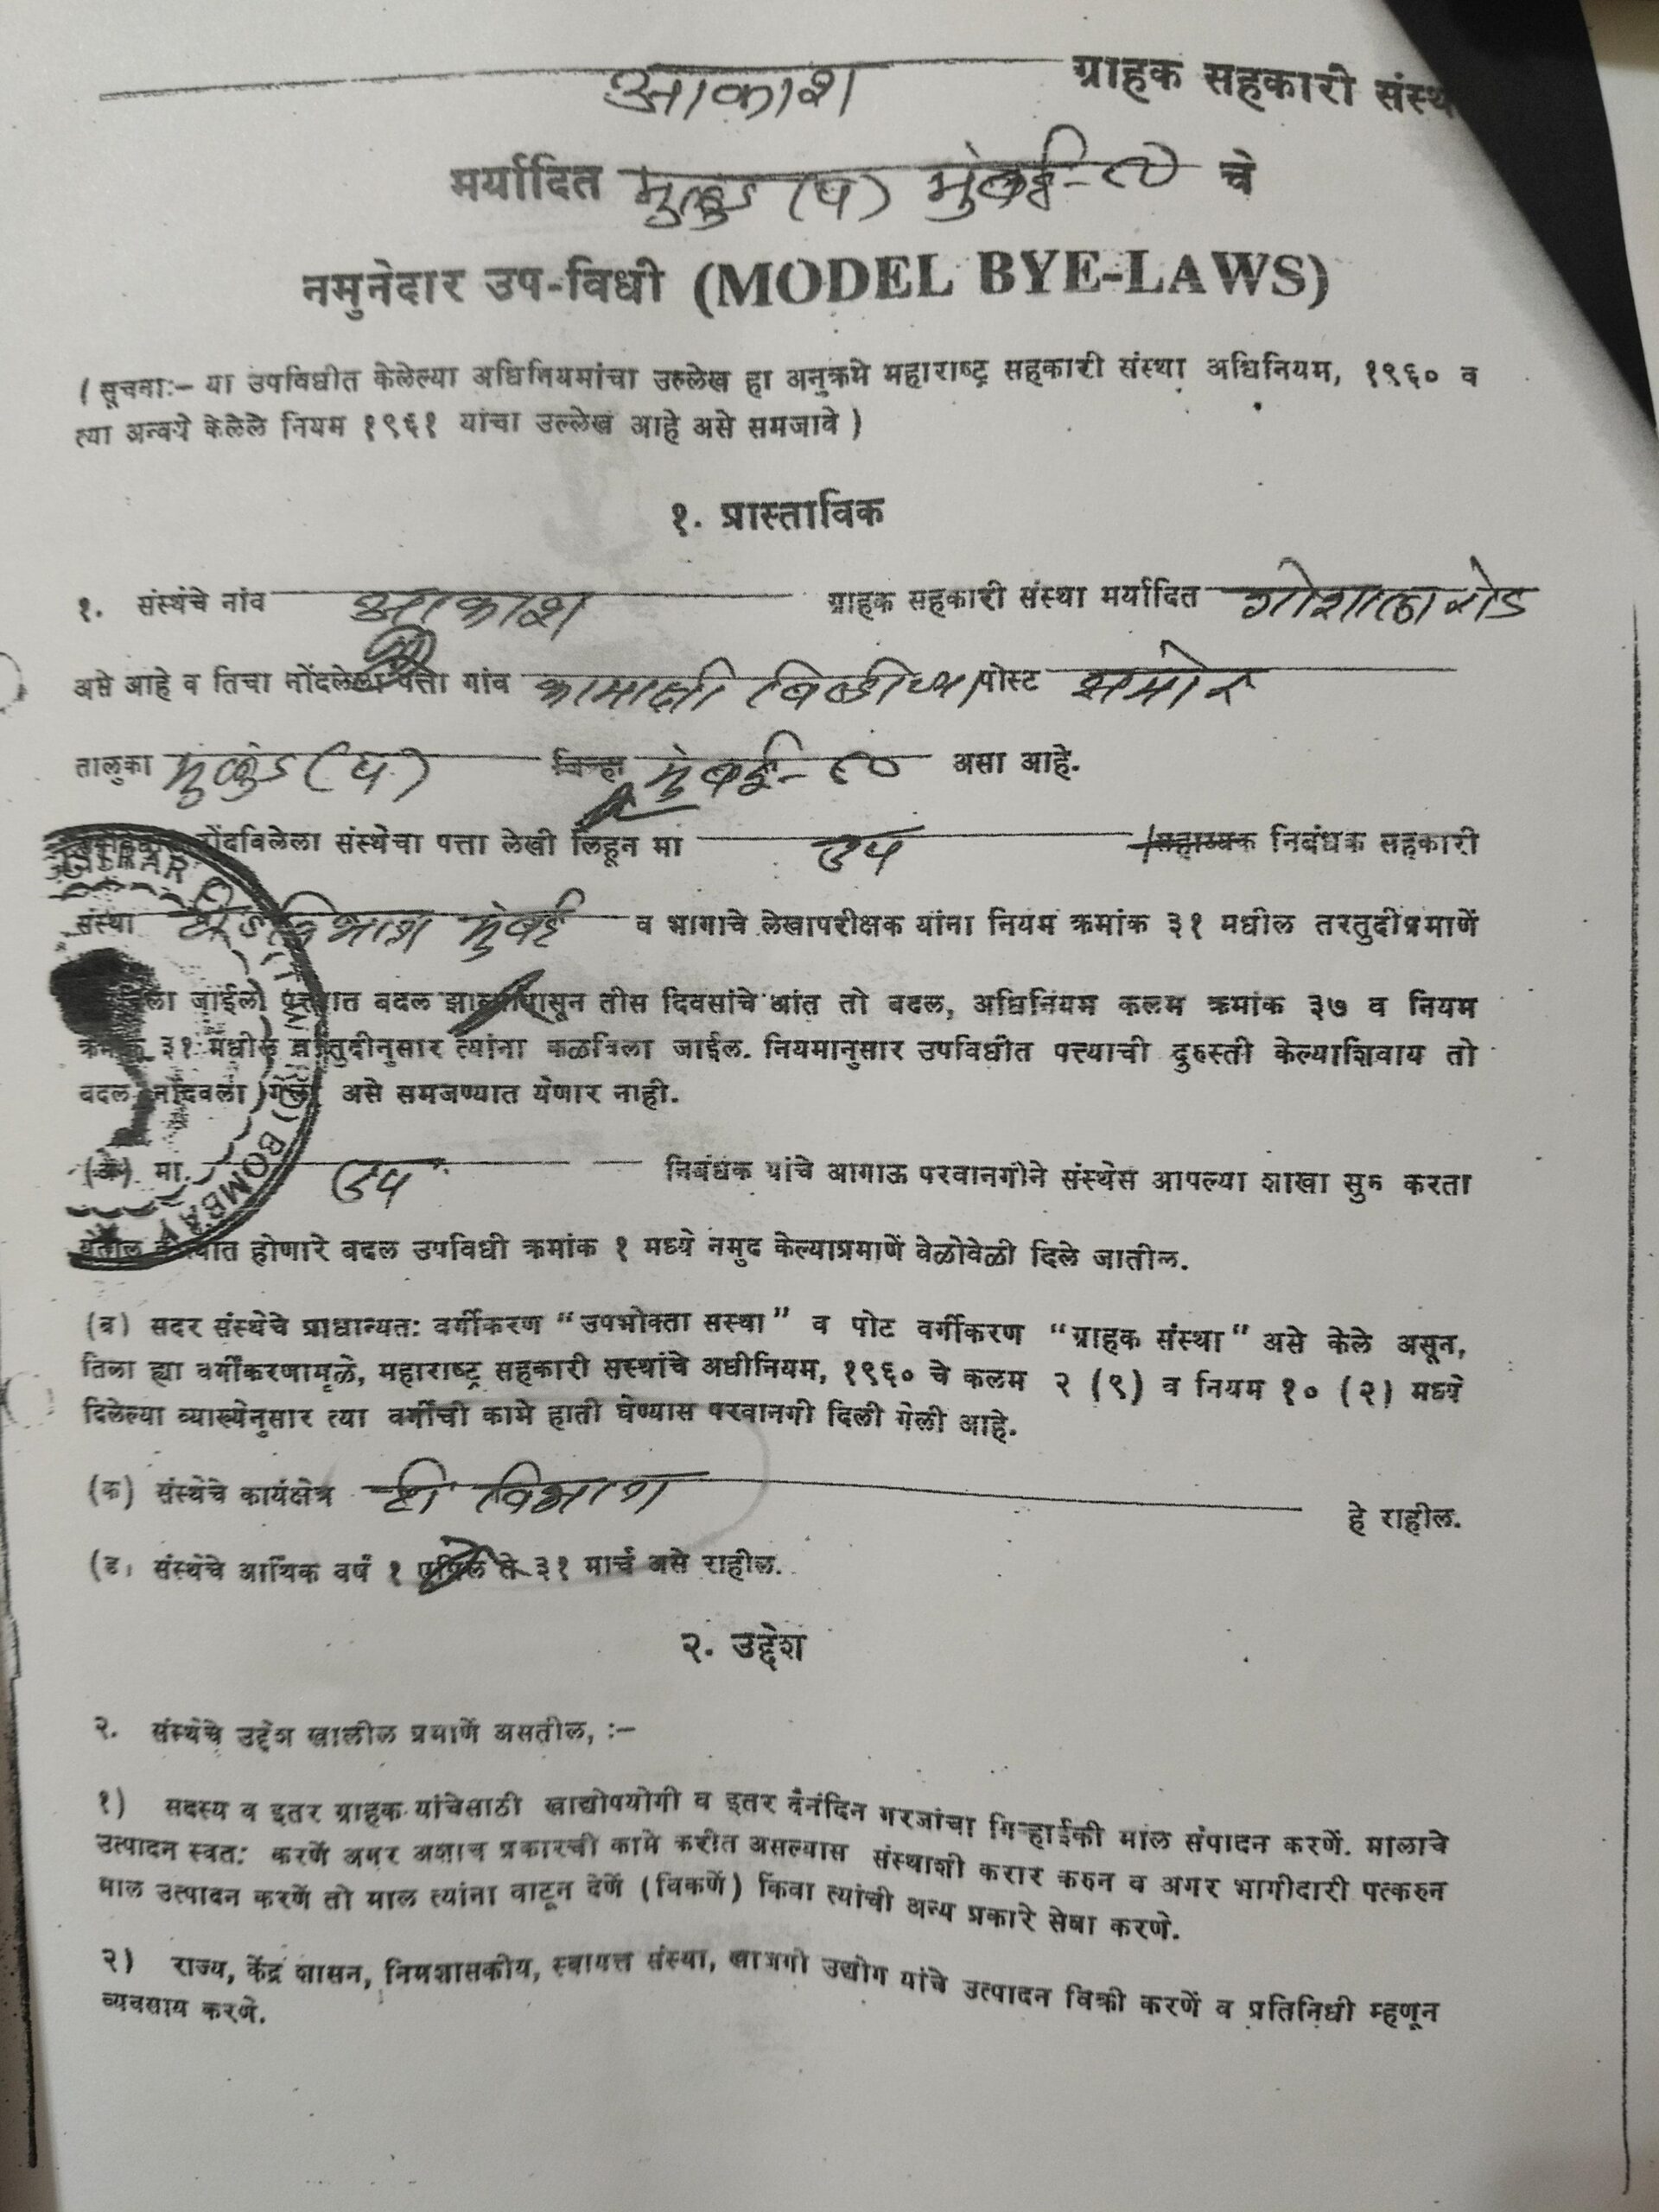 आकाश ग्राहक सहकारी संस्था
मर्यादित मुलुंड (प) मुंबई-८० चे
नमुनेदार उप-विधी (MODEL BYE-LAWS)
( सूचना:- या उपविधीत केलेल्या अधिनियमांचा उल्लेख हा अनुक्रमे महाराष्ट्र सहकारी संस्था अधिनियम, १९६० व
त्या अन्वये केलेले नियम १९६१ यांचा उल्लेख आहे असे समजावे )
१. प्रास्ताविक
१. संस्थेचे नांव आकाश ग्राहक सहकारी संस्था मर्यादित गोशाळा रोड
असे आहे व तिचा नोंदलेला पत्ता गांव कामाक्षी बिल्डींग पोस्ट समोर
तालुका मुलुंड (प) जिल्हा मुंबई-८० असा आहे.
नोंदविलेला संस्थेचा पत्ता लेखी लिहून मा उप सहाय्यक निबंधक सहकारी
संस्था टी विभाग मुंबई व भागाचे लेखापरीक्षक यांना नियम क्रमांक ३१ मधील तरतुदीप्रमाणें
जाईल पत्त्यात बदल झाल्यापासून तीस दिवसांचे आंत तो बदल, अधिनियम कलम क्रमांक ३७ व नियम
क्रमांक ३१ मधील तरतुदीनुसार त्यांना कळविला जाईल. नियमानुसार उपविधीत पत्त्याची दुरुस्ती केल्याशिवाय तो
बदल नोंदवला गेला असे समजण्यात येणार नाही.
(अ) मा. उप निबंधक यांचे आगाऊ परवानगीने संस्थेस आपल्या शाखा सुरु करता
येतील होणारे बदल उपविधी क्रमांक १ मध्ये नमुद केल्याप्रमाणें वेळोवेळी दिले जातील.
(ब) सदर संस्थेचे प्राधान्यत: वर्गीकरण "उपभोक्ता सस्था" व पोट वर्गीकरण "ग्राहक संस्था" असे केले असून,
तिला ह्या वर्गीकरणामूळे, महाराष्ट्र सहकारी सस्थांचे अधीनियम, १९६० चे कलम २ (९) व नियम १० (२) मध्ये
दिलेल्या व्याख्येनुसार त्या वर्गाची कामे हाती घेण्यास परवानगी दिली गेली आहे.
(क) संस्थेचे कार्यक्षेत्र टी विभाग हे राहील.
(ड) संस्थेचे आर्थिक वर्ष १ एप्रिल ते ३१ मार्च असे राहील.
२. उद्देश
२. संस्थेचे उद्देश खालील प्रमाणें असतील, :-
१) सदस्य व इतर ग्राहक यांचेसाठी खाद्योपयोगी व इतर दैनंदिन गरजांचा गिऱ्हाईकी माल संपादन करणें. मालाचे
उत्पादन स्वत: करणें अगर अशाच प्रकारची कामे करीत असल्यास संस्थाशी करार करुन व अगर भागीदारी पत्करुन
माल उत्पादन करणें तो माल त्यांना वाटून देणें (विकणें) किंवा त्यांची अन्य प्रकारे सेवा करणे.
२) राज्य, केंद्र शासन, निमशासकीय, स्वायत्त संस्था, खाजगी उद्योग यांचे उत्पादन विक्री करणें व प्रतिनिधी म्हणून
व्यवसाय करणे.